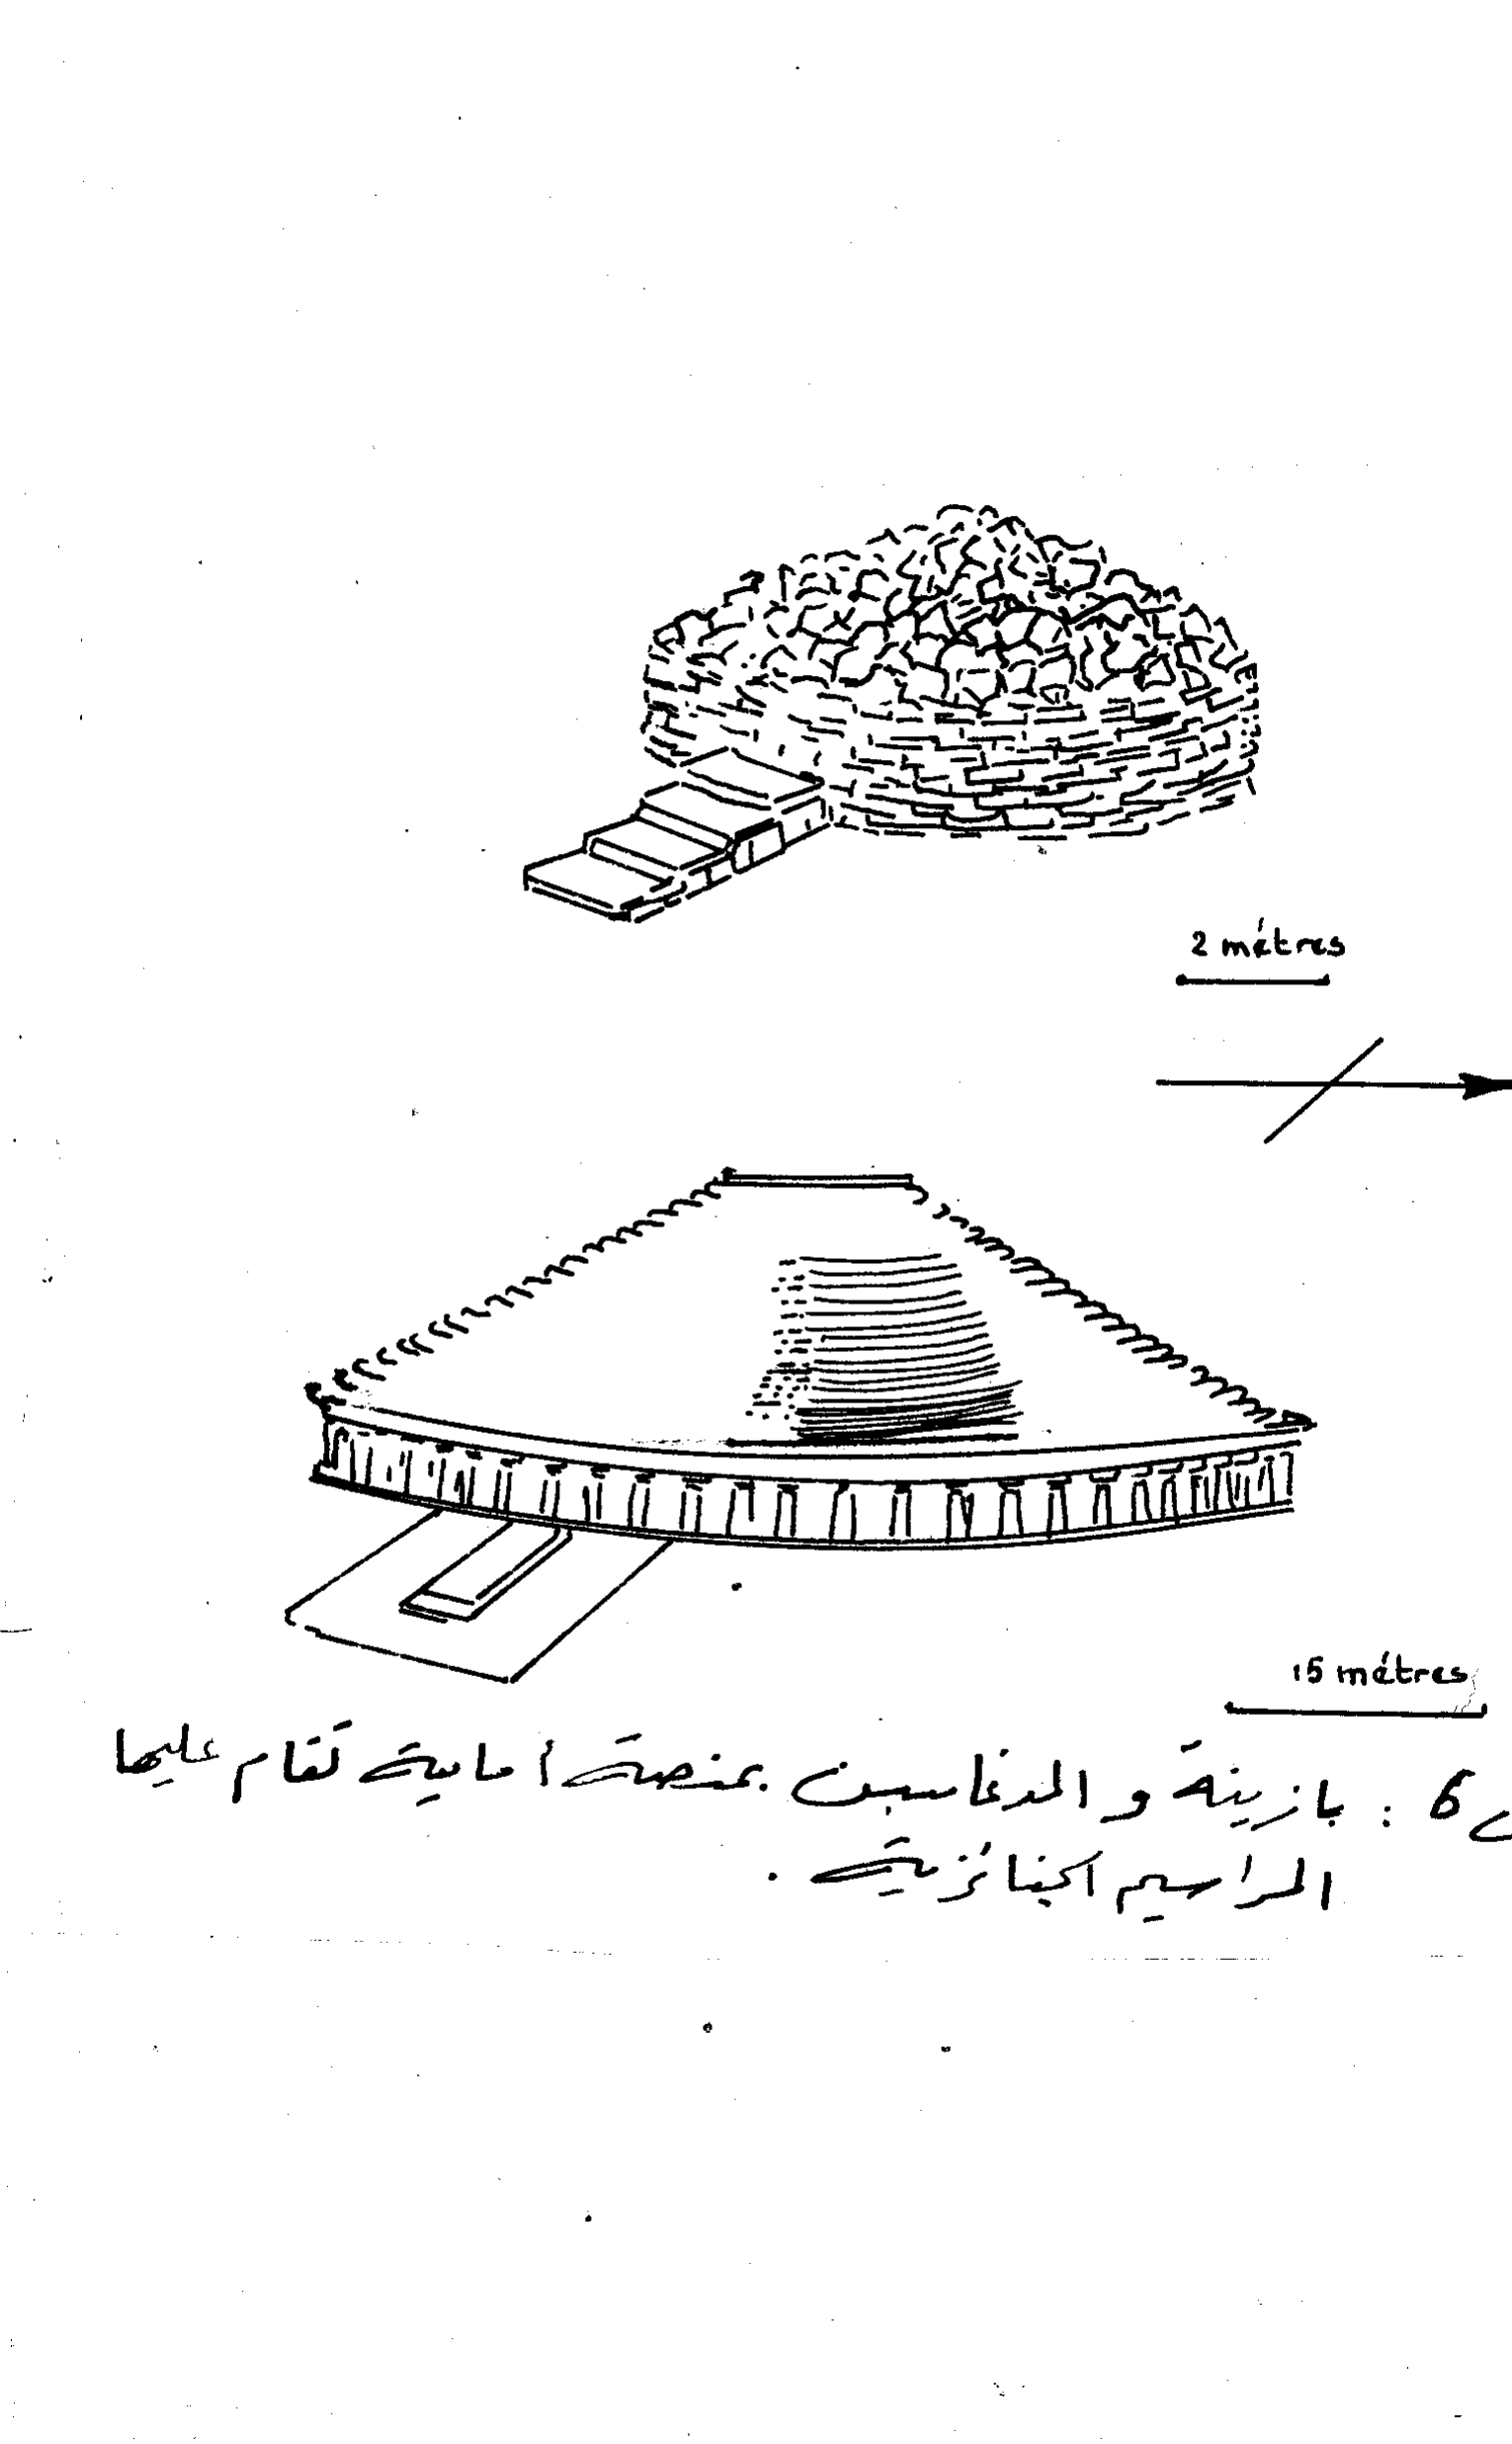 2 métres
15 métres
6 : بازينة و المدغاسن بمنصة أمامية تقام عليها
المراسيم الجنائزية .